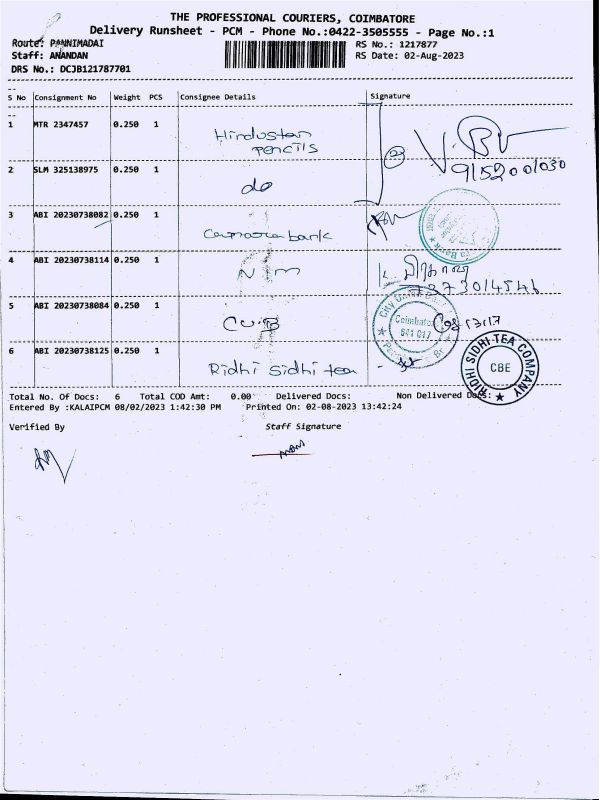 THE PROFESSIONAL COURIERS, COIMBATORE
Delivery Runsheet - PCM - Phone No.:0422-3505555 - Page No.:1
Route: PANNIMADAI
RS No.: 1217877
Staff: ANANDAN
RS Date: 02-Aug-2023
DRS No.: DCJB121787701
S No Consignment No Weight PCS Consignee Details Signature
1 MTR 2347457 0.250 1 Hindustan Pencils
2 SLM 325138975 0.250 1 do
9152001030
3 ABI 20230738082 0.250 1 Canara bank
4 ABI 20230738114 0.250 1 N I M
7373014546
5 ABI 20230738084 0.250 1 CUB
City Union Bank
Coimbatore
641 017
6 ABI 20230738125 0.250 1 Ridhi Sidhi tea
RIDHI SIDHI TEA COMPANY
CBE
Total No. Of Docs: 6 Total COD Amt: 0.00 Delivered Docs: Non Delivered Docs:
Entered By :KALAIPCM 08/02/2023 1:42:30 PM Printed On: 02-08-2023 13:42:24
Verified By Staff Signature